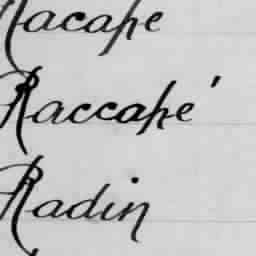 Racape
Raccapé
Radin